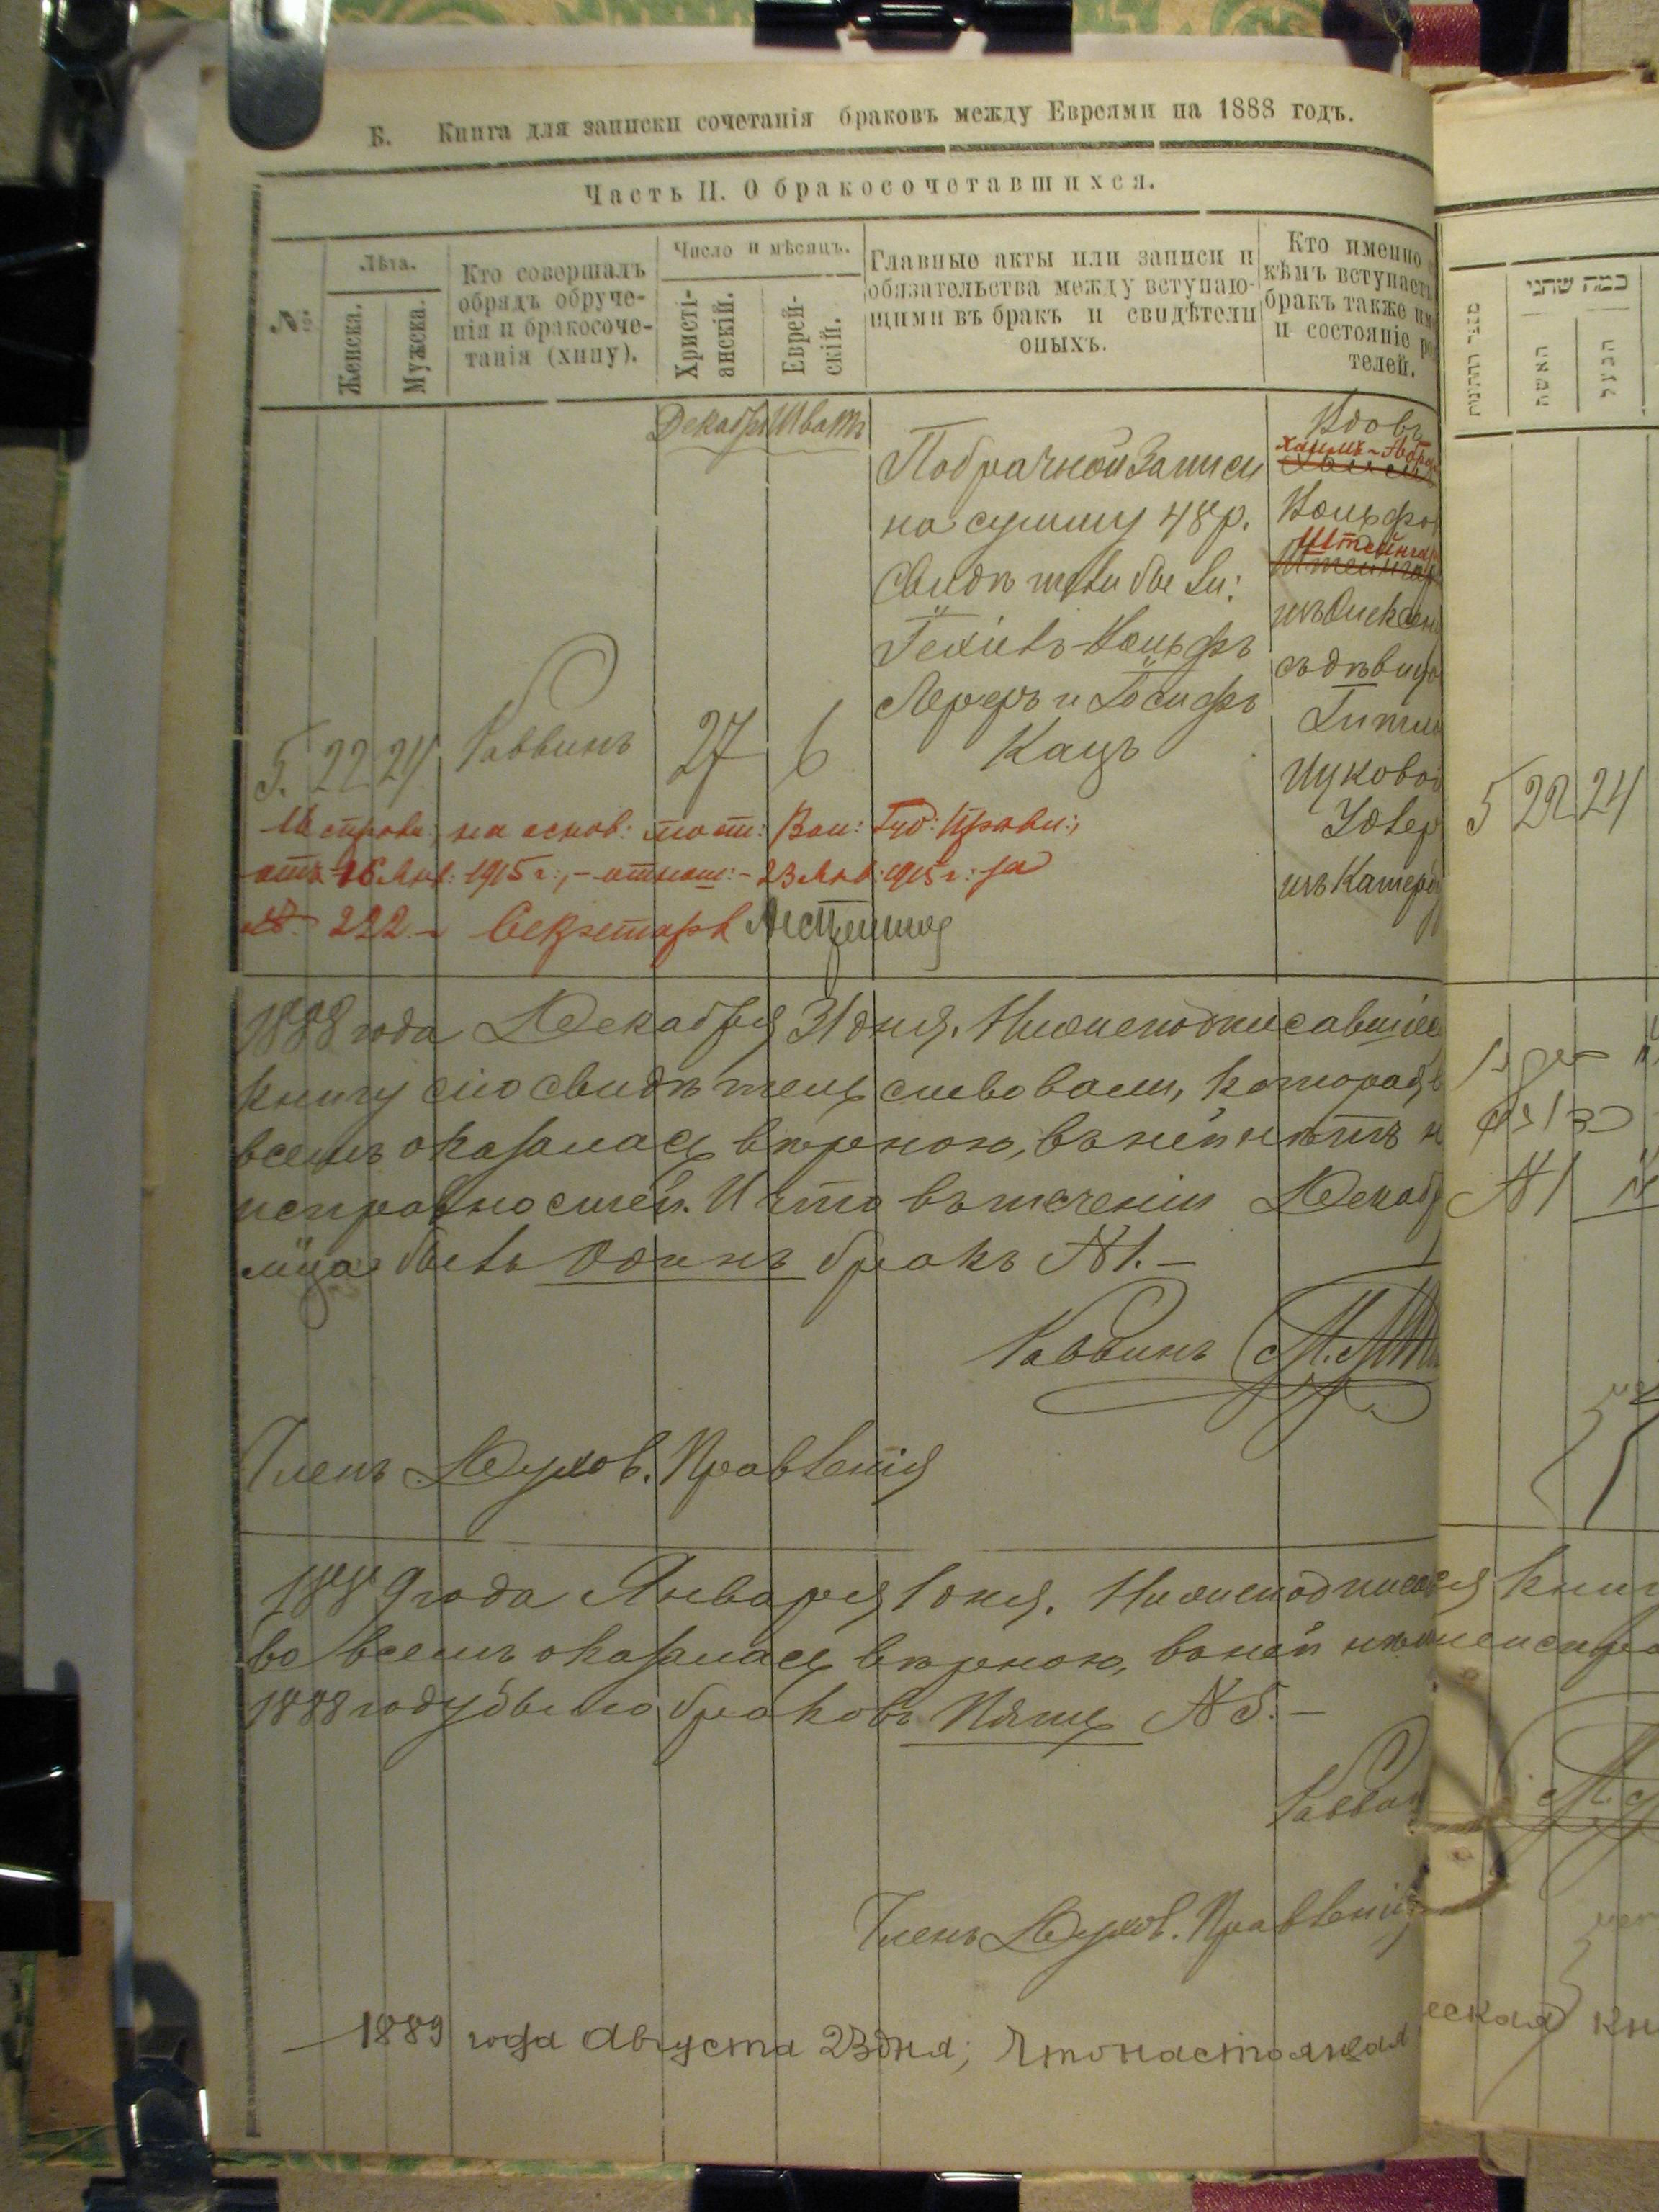 Б. Книга для записки сочетанія браковъ между Евреями на 1888 годъ.
Часть II. О бракосочетавшихся.
№
Лѣта.
Женска.
Мужска.
Кто совершалъ
обрядъ обруче-
нія и бракосоче-
танія (хипу).
Число и мѣсяцъ.
Христі-
анскій.
Еврей-
скій.
Главные акты или записи и
обязательства между вступаю-
щими въ бракъ и свидѣтели
оныхъ.
Кто именно
кѣмъ вступаетъ
бракъ также
и состояніе
телей.
מספר החתונות
כמה שתני
האשה
הבעל
Декабр Шватъ
По брачной записи
на сумму 48 р.
Свидѣтели были:
Іехіелъ-Вольфъ
Лереръ и Іосифъ
Кацъ
Вдовъ
Хаимъ-Абра
Вольфо
Штейнга
Штейнга
изъ Олексен
съ дѣвицо
Гитл
Ицково
Удлер
изъ Катер
5. 22 24 Раввинъ 27 6
5 22 24
Исправл: на основ: Вол: Губ: Правл:,
отъ 16 Янв: 1915 г:, – отнош: – 23 Янв: 1915 г: за
№ 222 – Секретарь
1888 года Декабря 31 дня. Нижеподписавшіе
книгу сію свидѣтельствовали, которая в
всемъ оказалась вѣрною, въ ней нѣтъ н
исправностей. И что въ теченіи Декабр
мца былъ Одинъ бракъ №1. –
№1
Раввинъ
Членъ Духов. Правленія
1889 года Января 1 дня. Нижеподписав
во всемъ оказалась вѣрною, въ ней нѣт
1888 году было браковъ Пять №5. –
Равви
Членъ Духов. Правленія
1889 года Августа 23 дня; Что настоящая
еская кн